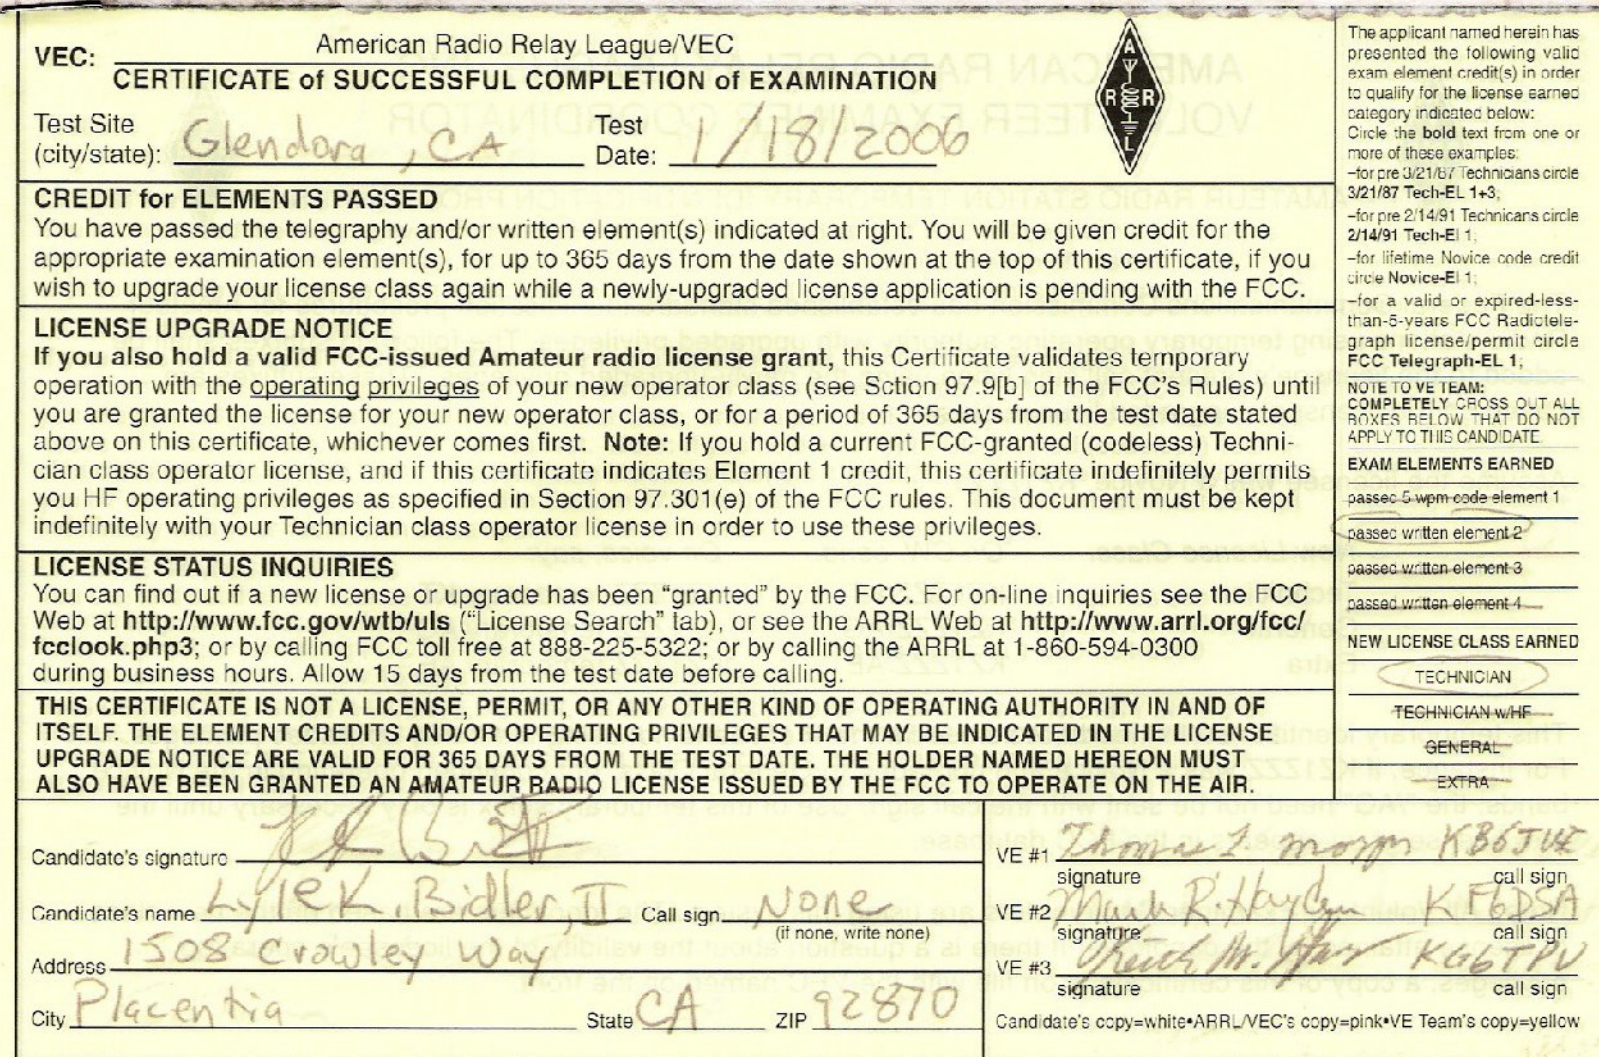 VEC: American Radio Relay League/VEC
CERTIFICATE of SUCCESSFUL COMPLETION of EXAMINATION
Test Site
(city/state): Glendora, CA
Test
Date: 1/18/2006
A
R R
L
CREDIT for ELEMENTS PASSED
You have passed the telegraphy and/or written element(s) indicated at right. You will be given credit for the
appropriate examination element(s), for up to 365 days from the date shown at the top of this certificate, if you
wish to upgrade your license class again while a newly-upgraded license application is pending with the FCC.
LICENSE UPGRADE NOTICE
If you also hold a valid FCC-issued Amateur radio license grant, this Certificate validates temporary
operation with the operating privileges of your new operator class (see Sction 97.9[b] of the FCC's Rules) until
you are granted the license for your new operator class, or for a period of 365 days from the test date stated
above on this certificate, whichever comes first. Note: If you hold a current FCC-granted (codeless) Techni-
cian class operator license, and if this certificate indicates Element 1 credit, this certificate indefinitely permits
you HF operating privileges as specified in Section 97.301(e) of the FCC rules. This document must be kept
indefinitely with your Technician class operator license in order to use these privileges.
LICENSE STATUS INQUIRIES
You can find out if a new license or upgrade has been "granted" by the FCC. For on-line inquiries see the FCC
Web at http://www.fcc.gov/wtb/uls ("License Search" tab), or see the ARRL Web at http://www.arrl.org/fcc/
fcclook.php3; or by calling FCC toll free at 888-225-5322; or by calling the ARRL at 1-860-594-0300
during business hours. Allow 15 days from the test date before calling.
THIS CERTIFICATE IS NOT A LICENSE, PERMIT, OR ANY OTHER KIND OF OPERATING AUTHORITY IN AND OF
ITSELF. THE ELEMENT CREDITS AND/OR OPERATING PRIVILEGES THAT MAY BE INDICATED IN THE LICENSE
UPGRADE NOTICE ARE VALID FOR 365 DAYS FROM THE TEST DATE. THE HOLDER NAMED HEREON MUST
ALSO HAVE BEEN GRANTED AN AMATEUR RADIO LICENSE ISSUED BY THE FCC TO OPERATE ON THE AIR.
The applicant named herein has
presented the following valid
exam element credit(s) in order
to qualify for the license earned
category indicated below:
Circle the bold text from one or
more of these examples:
–for pre 3/21/87 Technicians circle
3/21/87 Tech-EL 1+3;
–for pre 2/14/91 Technicans circle
2/14/91 Tech-El 1;
–for lifetime Novice code credit
circle Novice-El 1;
–for a valid or expired-less-
than-5-years FCC Radiotele-
graph license/permit circle
FCC Telegraph-EL 1;
NOTE TO VE TEAM:
COMPLETELY CROSS OUT ALL
BOXES BELOW THAT DO NOT
APPLY TO THIS CANDIDATE
EXAM ELEMENTS EARNED
passed 5 wpm code element 1
passed written element 2
passed written element 3
passed written element 4
NEW LICENSE CLASS EARNED
TECHNICIAN
TECHNICIAN w/HF
GENERAL
EXTRA
Candidate's signature
Candidate's name Lyle K. Bidler, II Call sign None
(if none, write none)
Address 1508 Crowley Way
City Placentia State CA ZIP 92870
VE #1 Thomas KB6JUE
signature call sign
VE #2 Mark R. KF6DSA
signature call sign
VE #3 M. KG6TPU
signature call sign
Candidate's copy=white•ARRL/VEC's copy=pink•VE Team's copy=yellow